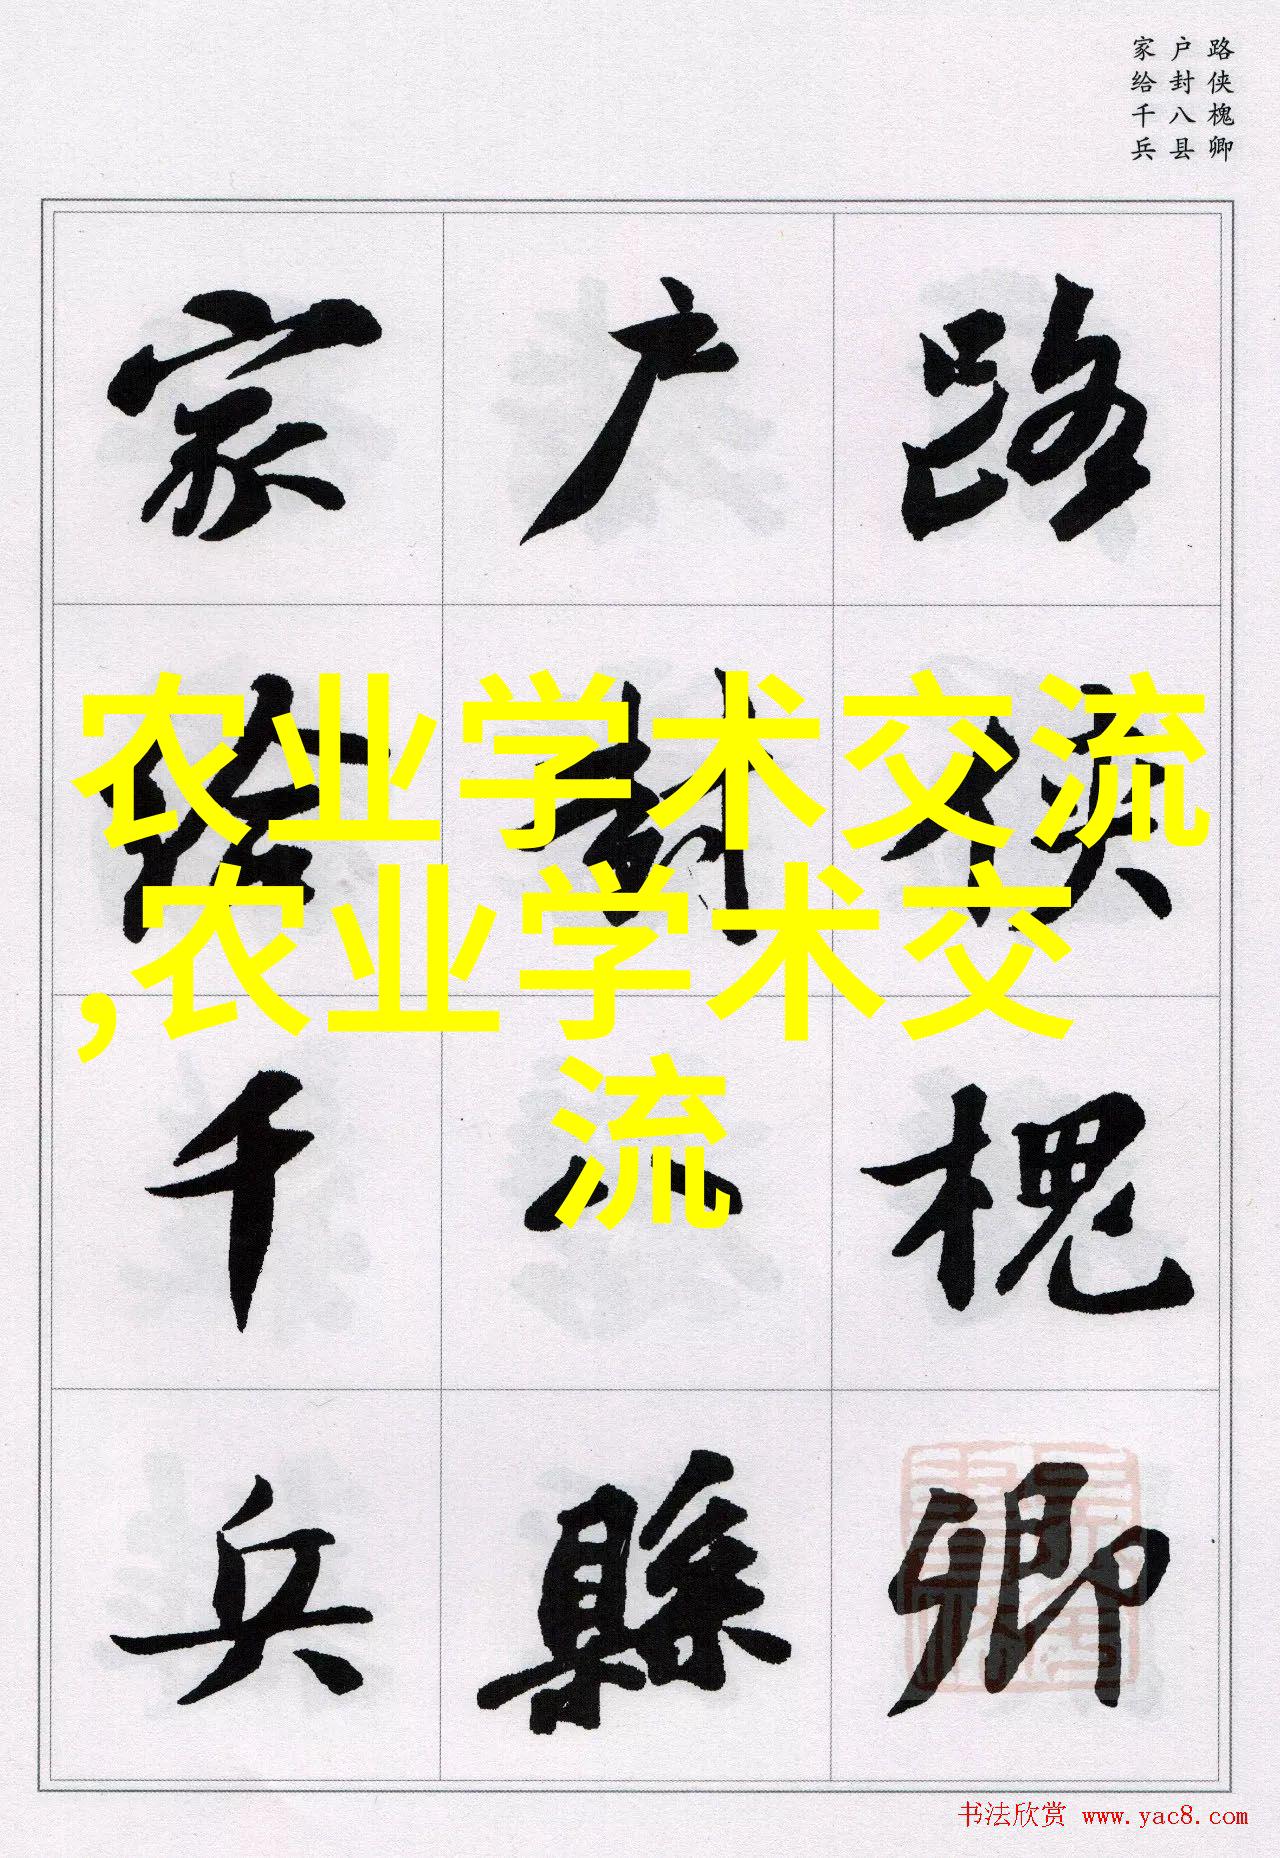 路侠槐卿
户封八县
家给千兵
路侠槐卿
户封八縣
家给千兵
农业学术交流
,农业学术交
流
书法欣赏 www.yac8.com